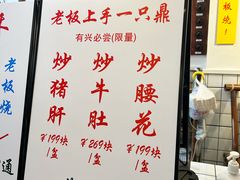 老板上手一只鼎
有兴必尝(限量)
炒猪肝
¥199块
1盆
炒牛肚
¥269块
1盆
炒腰花
¥199块
1盆
老板烧
通
板烧!